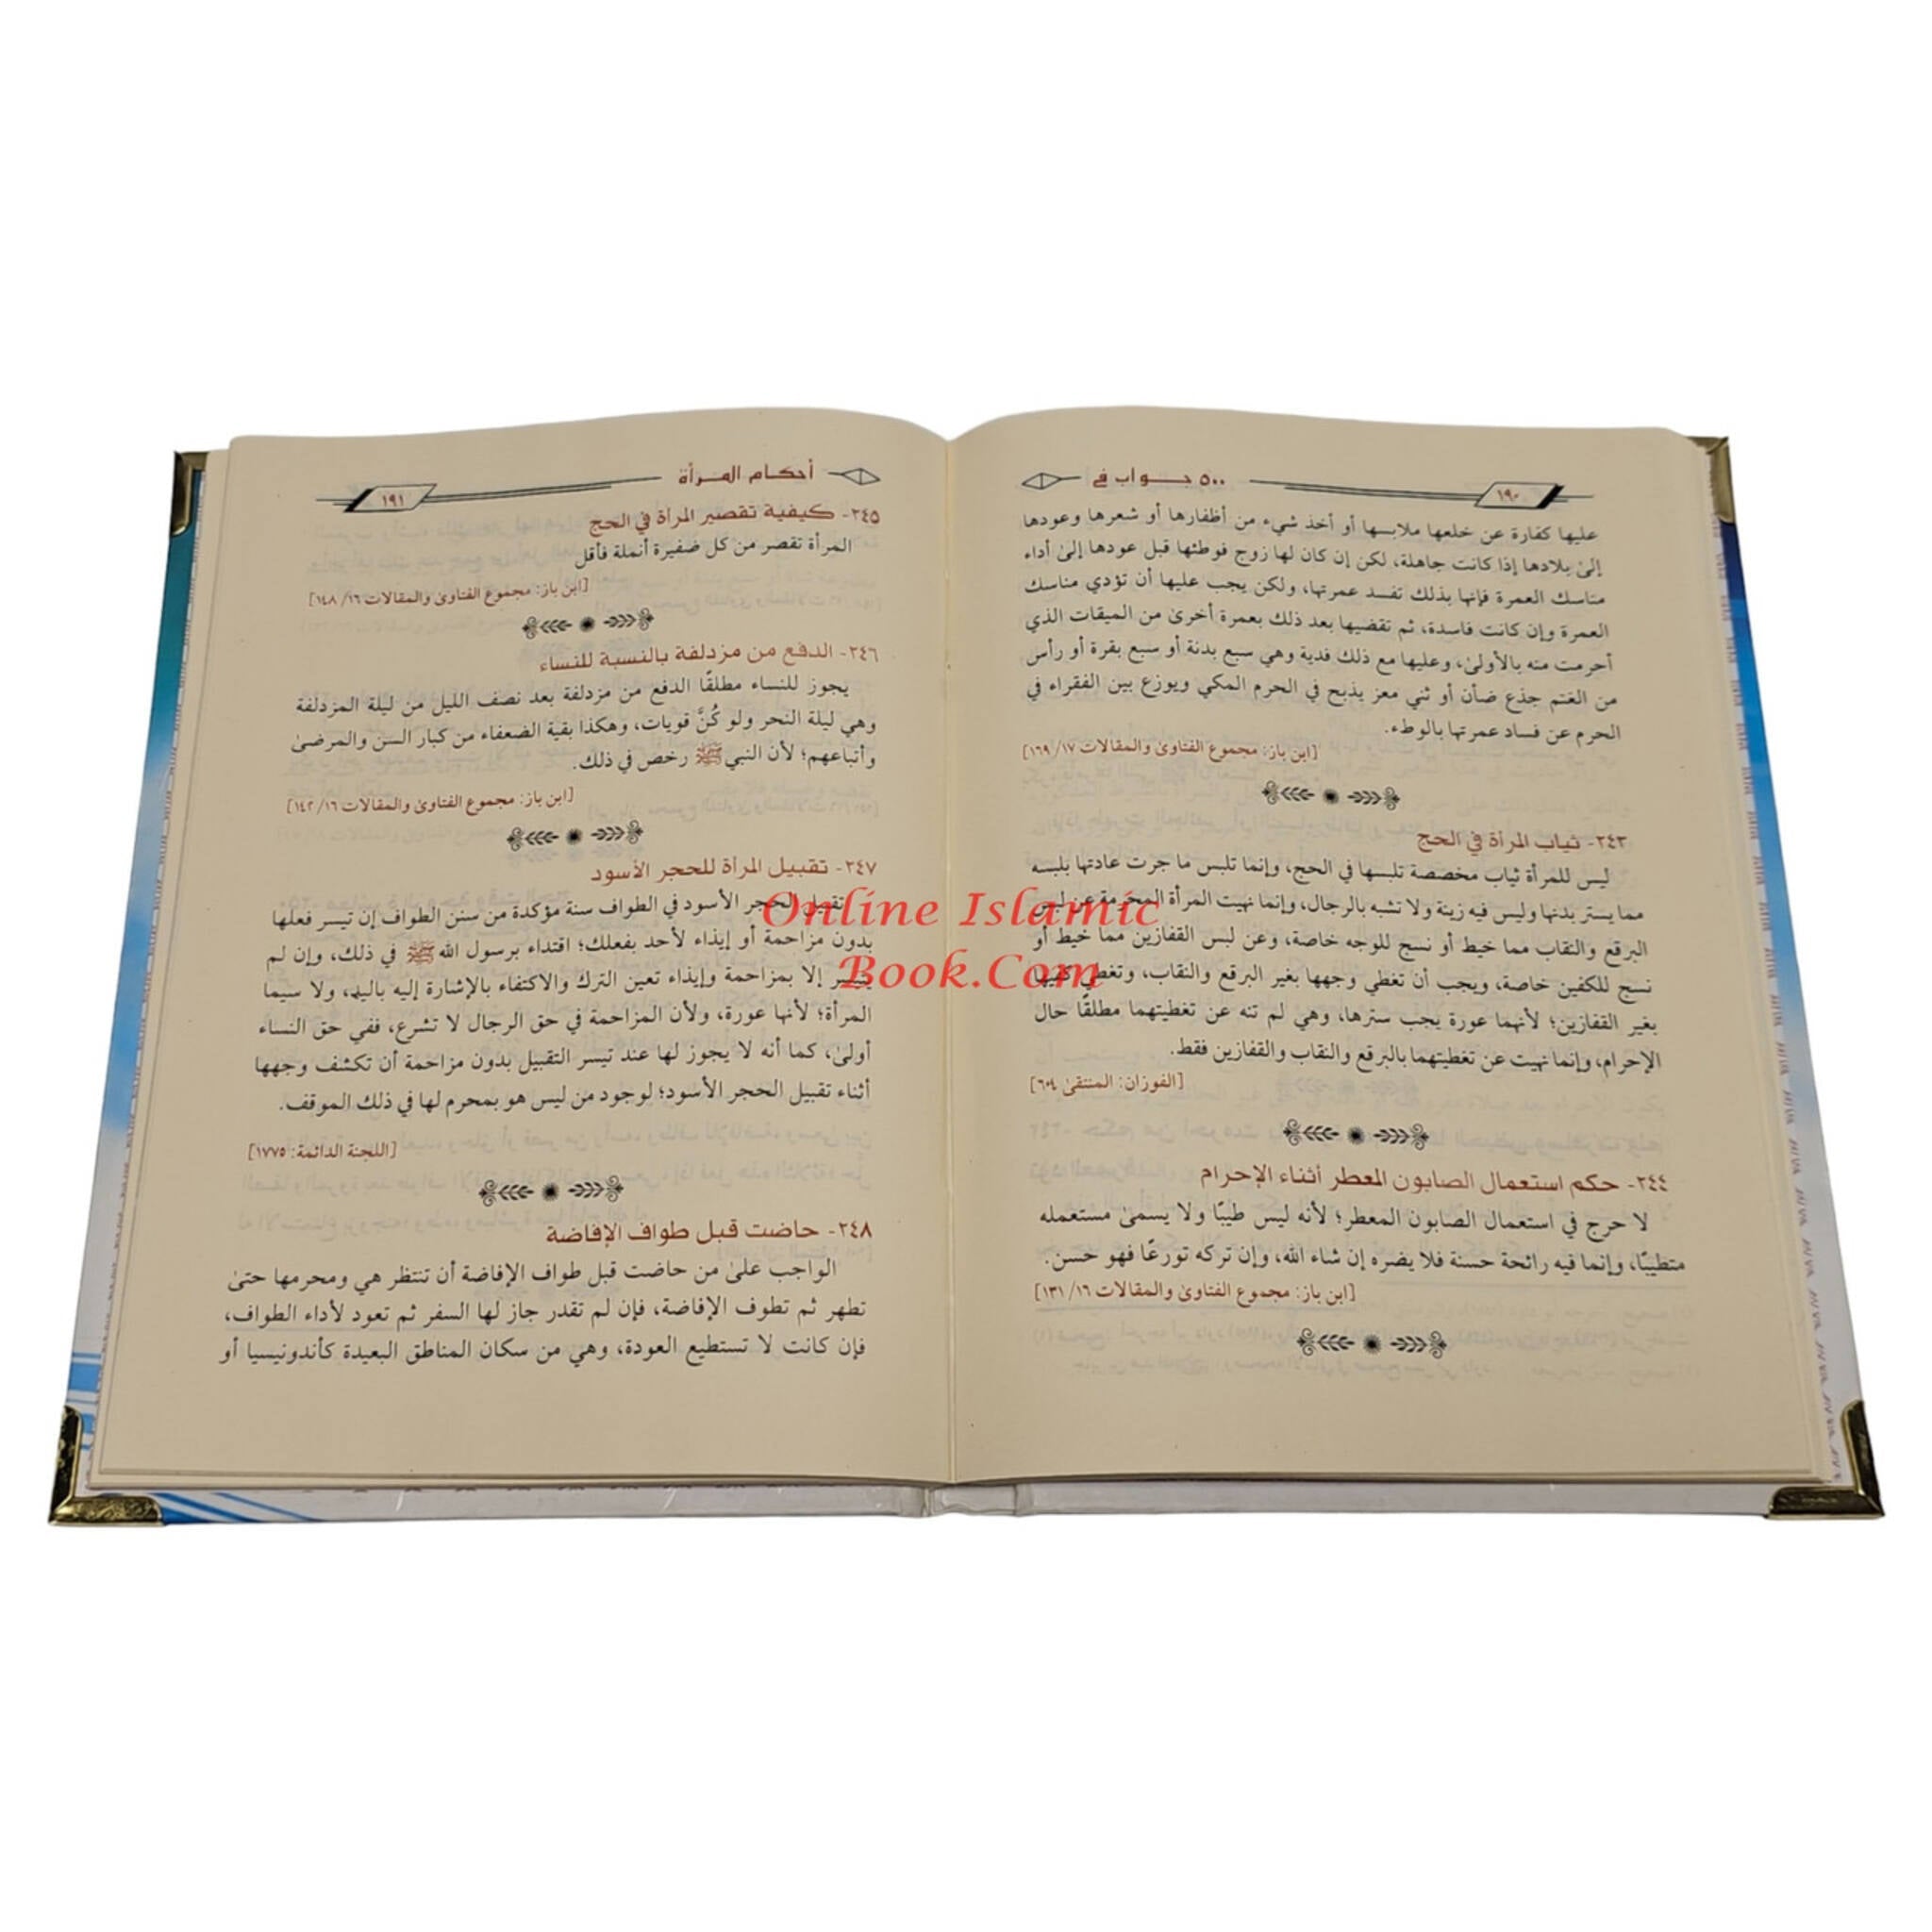 ١٩٠
٥٠٠ جـــواب في
عليها كفارة عن خلعها ملابسها أو أخذ شيء من أظفارها أو شعرها وعودها
إلىٰ بلادها إذا كانت جاهلة، لكن إن كان لها زوج فوطئها قبل عودها إلىٰ أداء
مناسك العمرة فإنها بذلك تفسد عمرتها، ولكن يجب عليها أن تؤدي مناسك
العمرة وإن كانت فاسدة، ثم تقضيها بعد ذلك بعمرة أخرىٰ من الميقات الذي
أحرمت منه بالأولىٰ، وعليها مع ذلك فدية وهي سبع بدنة أو سبع بقرة أو رأس
من الغنم جذع ضأن أو ثني معز يذبح في الحرم المكي ويوزع بين الفقراء في
الحرم عن فساد عمرتها بالوطء.
[ابن باز: مجموع الفتاوىٰ والمقالات ١٧/ ١٦٩]
٢٤٣- ثياب المرأة في الحج
ليس للمرأة ثياب مخصصة تلبسها في الحج، وإنما تلبس ما جرت عادتها بلبسه
مما يستر بدنها وليس فيه زينة ولا تشبه بالرجال، وإنما نهيت المرأة المحرمة عن لبس
البرقع والنقاب مما خيط أو نسج للوجه خاصة، وعن لبس القفازين مما خيط أو
نسج للكفين خاصة، ويجب أن تغطي وجهها بغير البرقع والنقاب، وتغطي كفيها
بغير القفازين؛ لأنهما عورة يجب سترها، وهي لم تنه عن تغطيتهما مطلقًا حال
الإحرام، وإنما نهيت عن تغطيتهما بالبرقع والنقاب والقفازين فقط.
[الفوزان: المنتقىٰ ٦٠٤]
٢٤٤- حكم استعمال الصابون المعطر أثناء الإحرام
لا حرج في استعمال الصابون المعطر؛ لأنه ليس طيبًا ولا يسمىٰ مستعمله
متطيبًا، وإنما فيه رائحة حسنة فلا يضره إن شاء الله، وإن تركه تورعًا فهو حسن.
[ابن باز: مجموع الفتاوىٰ والمقالات ١٦/ ١٣١]
أحكام المـرأة
١٩١
٢٤٥- كيفية تقصير المرأة في الحج
المرأة تقصر من كل ضفيرة أنملة فأقل
[ابن باز: مجموع الفتاوىٰ والمقالات ١٦/ ١٤٨]
٢٤٦- الدفع من مزدلفة بالنسبة للنساء
يجوز للنساء مطلقًا الدفع من مزدلفة بعد نصف الليل من ليلة المزدلفة
وهي ليلة النحر ولو كُنَّ قويات، وهكذا بقية الضعفاء من كبار السن والمرضىٰ
وأتباعهم؛ لأن النبي ﷺ رخص في ذلك.
[ابن باز: مجموع الفتاوىٰ والمقالات ١٦/ ١٤٢]
٢٤٧- تقبيل المرأة للحجر الأسود
تقبيل الحجر الأسود في الطواف سنة مؤكدة من سنن الطواف إن تيسر فعلها
بدون مزاحمة أو إيذاء لأحد بفعلك؛ اقتداء برسول الله ﷺ في ذلك، وإن لم
يتيسر إلا بمزاحمة وإيذاء تعين الترك والاكتفاء بالإشارة إليه باليد، ولا سيما
المرأة؛ لأنها عورة، ولأن المزاحمة في حق الرجال لا تشرع، ففي حق النساء
أولىٰ، كما أنه لا يجوز لها عند تيسر التقبيل بدون مزاحمة أن تكشف وجهها
أثناء تقبيل الحجر الأسود؛ لوجود من ليس هو بمحرم لها في ذلك الموقف.
[اللجنة الدائمة: ١٧٧٥]
٢٤٨- حاضت قبل طواف الإفاضة
الواجب علىٰ من حاضت قبل طواف الإفاضة أن تنتظر هي ومحرمها حتىٰ
تطهر ثم تطوف الإفاضة، فإن لم تقدر جاز لها السفر ثم تعود لأداء الطواف،
فإن كانت لا تستطيع العودة، وهي من سكان المناطق البعيدة كأندونيسيا أو
Online Islamic
Book.Com